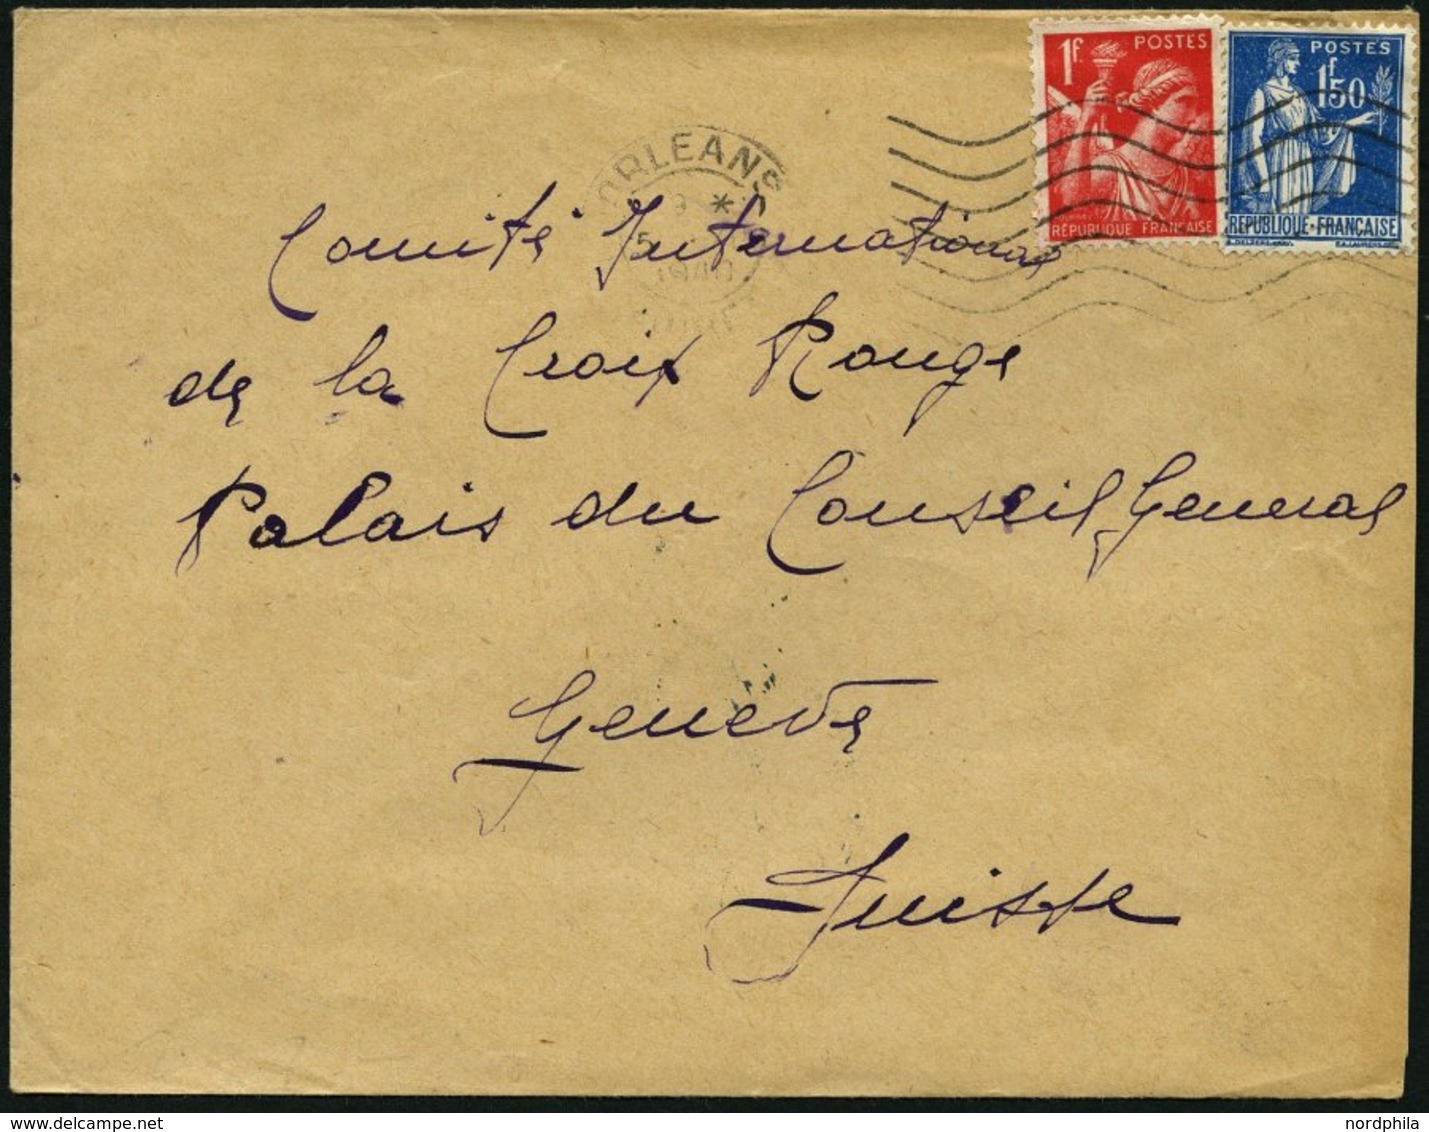 1f. POSTES
POSTES
1f50
RÉPUBLIQUE FRANÇAISE
REPUBLIQUE·FRANÇAISE
ORLEANS
1940
Comité International
de la Croix Rouge
Palais du Conseil General
Geneve
Suisse
www.delcampe.net
nordphila